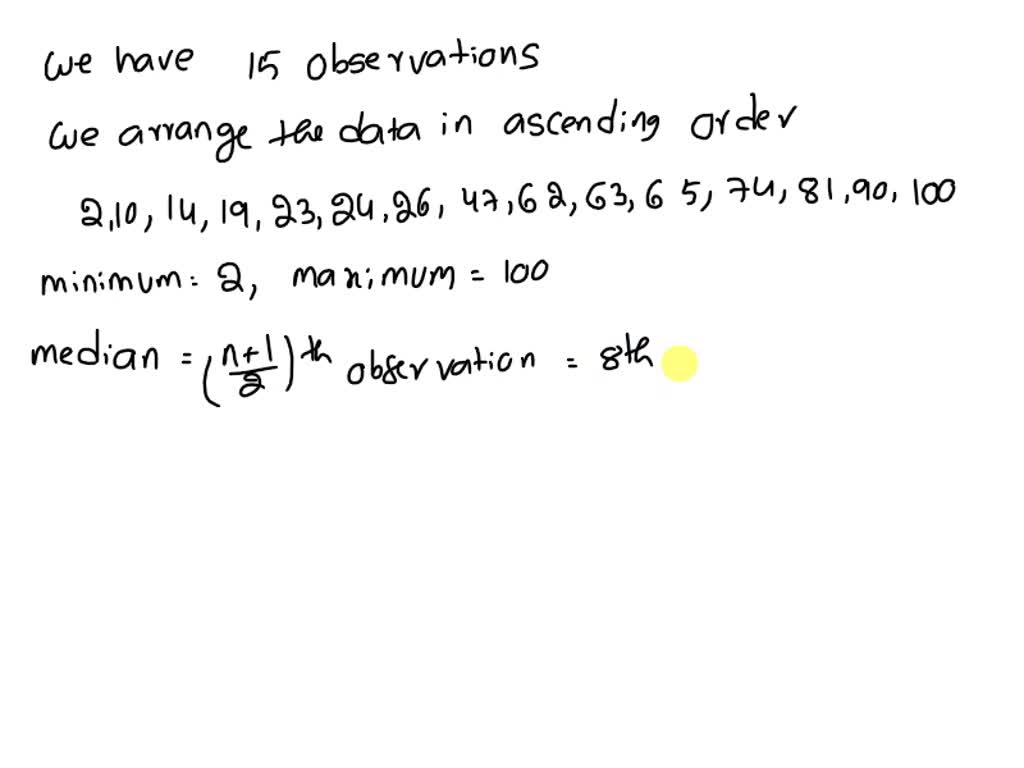 we have 15 observations
we arrange the data in ascending order
2,10, 14, 19, 23, 24, 26, 47, 62, 63, 65, 74, 81, 90, 100
minimum = 2, maximum = 100
median = (n+1/2)th observation = 8th